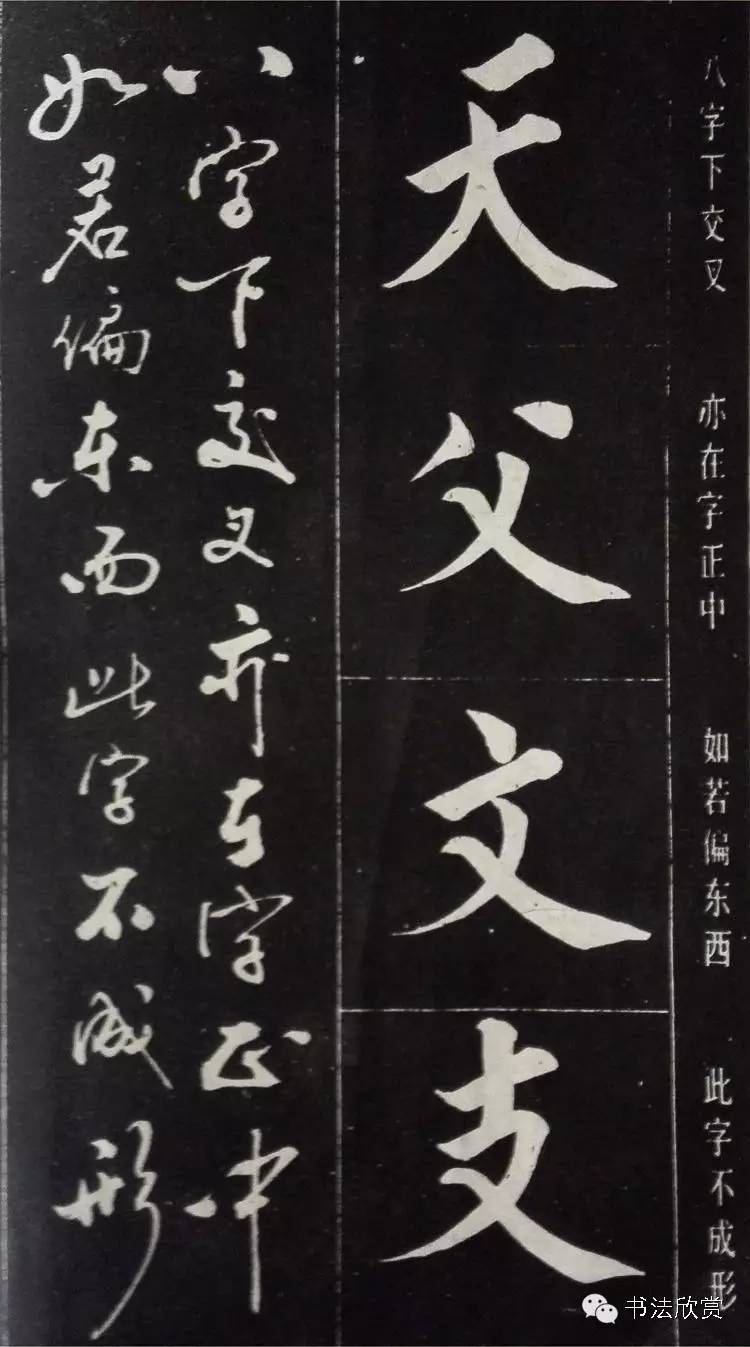 八字下交叉 亦在字正中 如若偏东西 此字不成形
天父文支
八字下交叉亦在字正中
如若偏东西此字不成形
书法欣赏